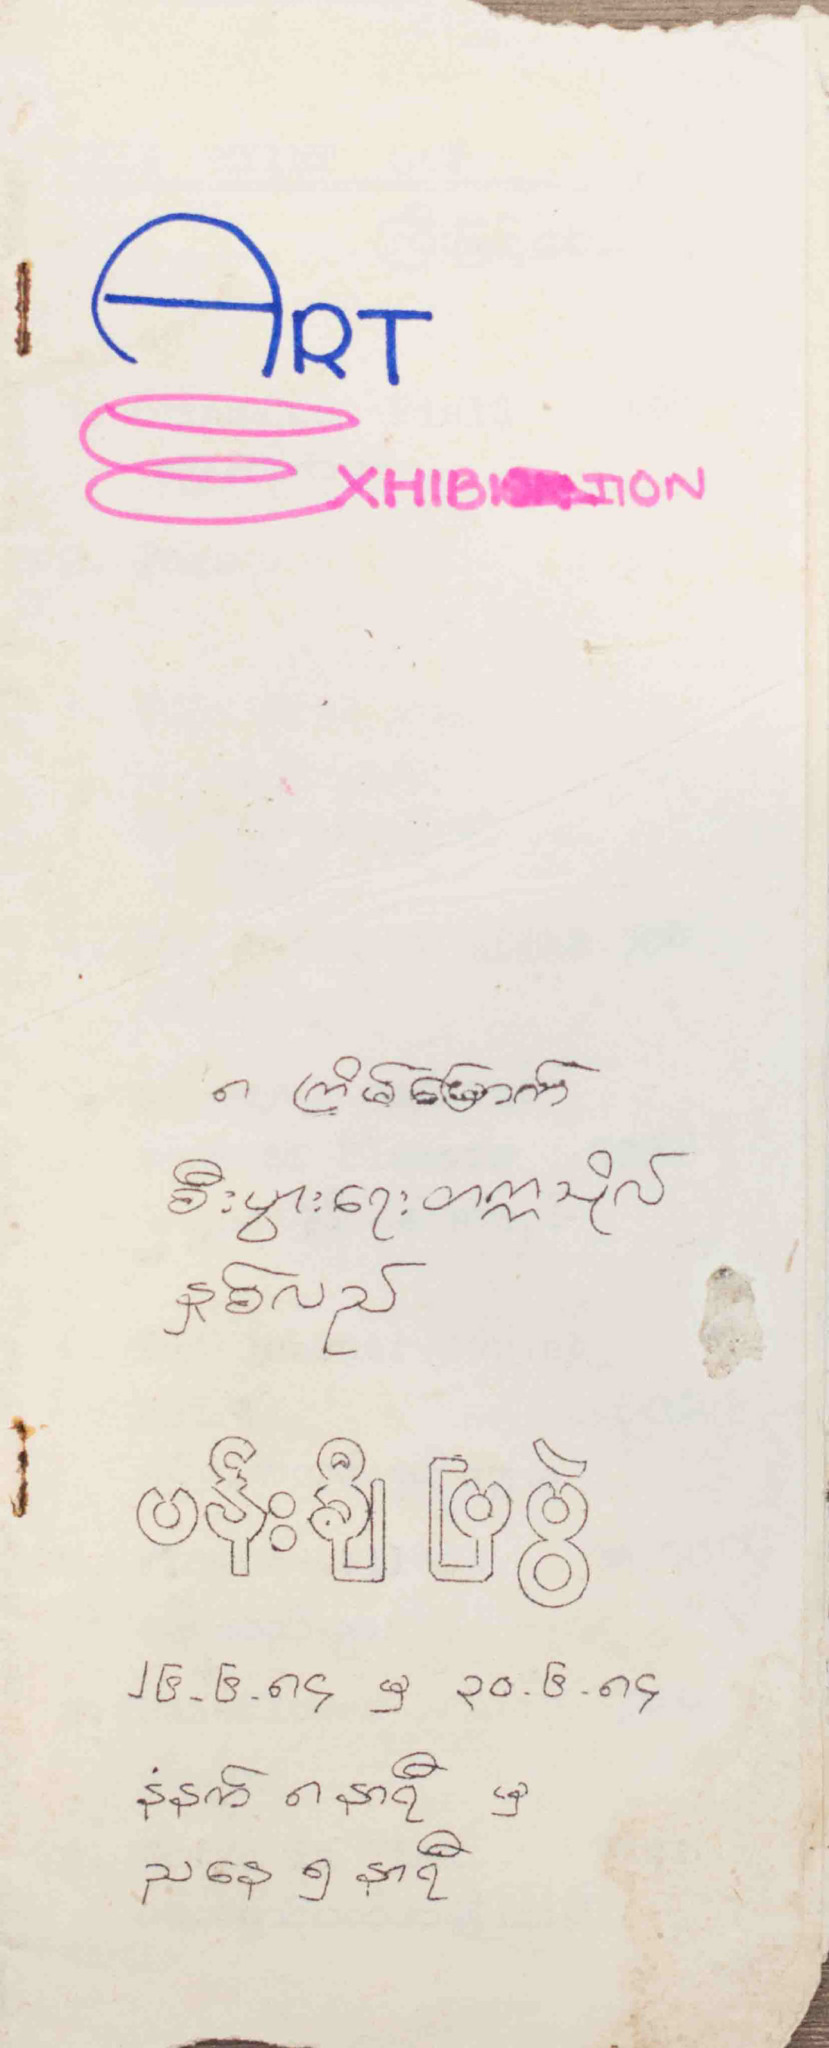 ART
EXHIBITION
၈ ကြိမ်မြောက်
စီးပွားရေးတက္ကသိုလ်
နှစ်လည်
ပန်းချီ ပြပွဲ
၂၆.၆.၈၄ မှ ၃၀.၆.၈၄
နံနက် ၈ နာရီ မှ
ညနေ ၅ နာရီ